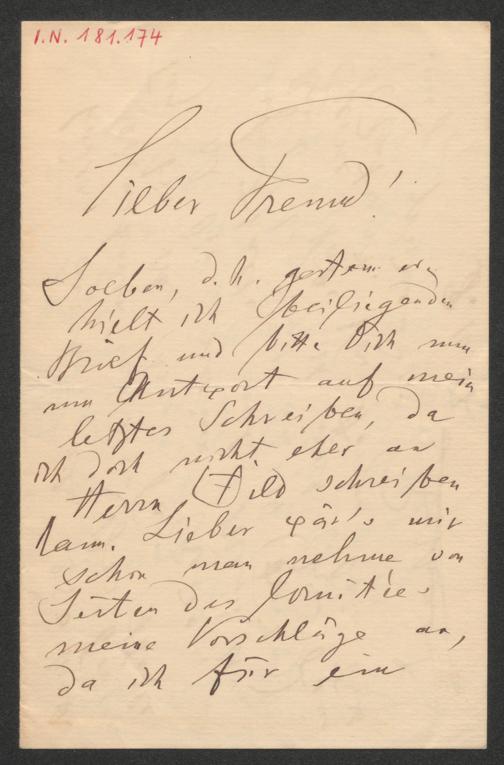 I.N. 181.174
Lieber Freund!
Soeben, d.h. gestern er-
hielt ich beiliegenden
Brief und bitte Dich nun
um Antwort auf mein
letztes Schreiben, da
ich doch nicht eher an
Herrn schreiben
kann. Lieber wär's mir
schon man nehme von
Seiten des Comitées
meine Vorschläge an,
da ich für ein